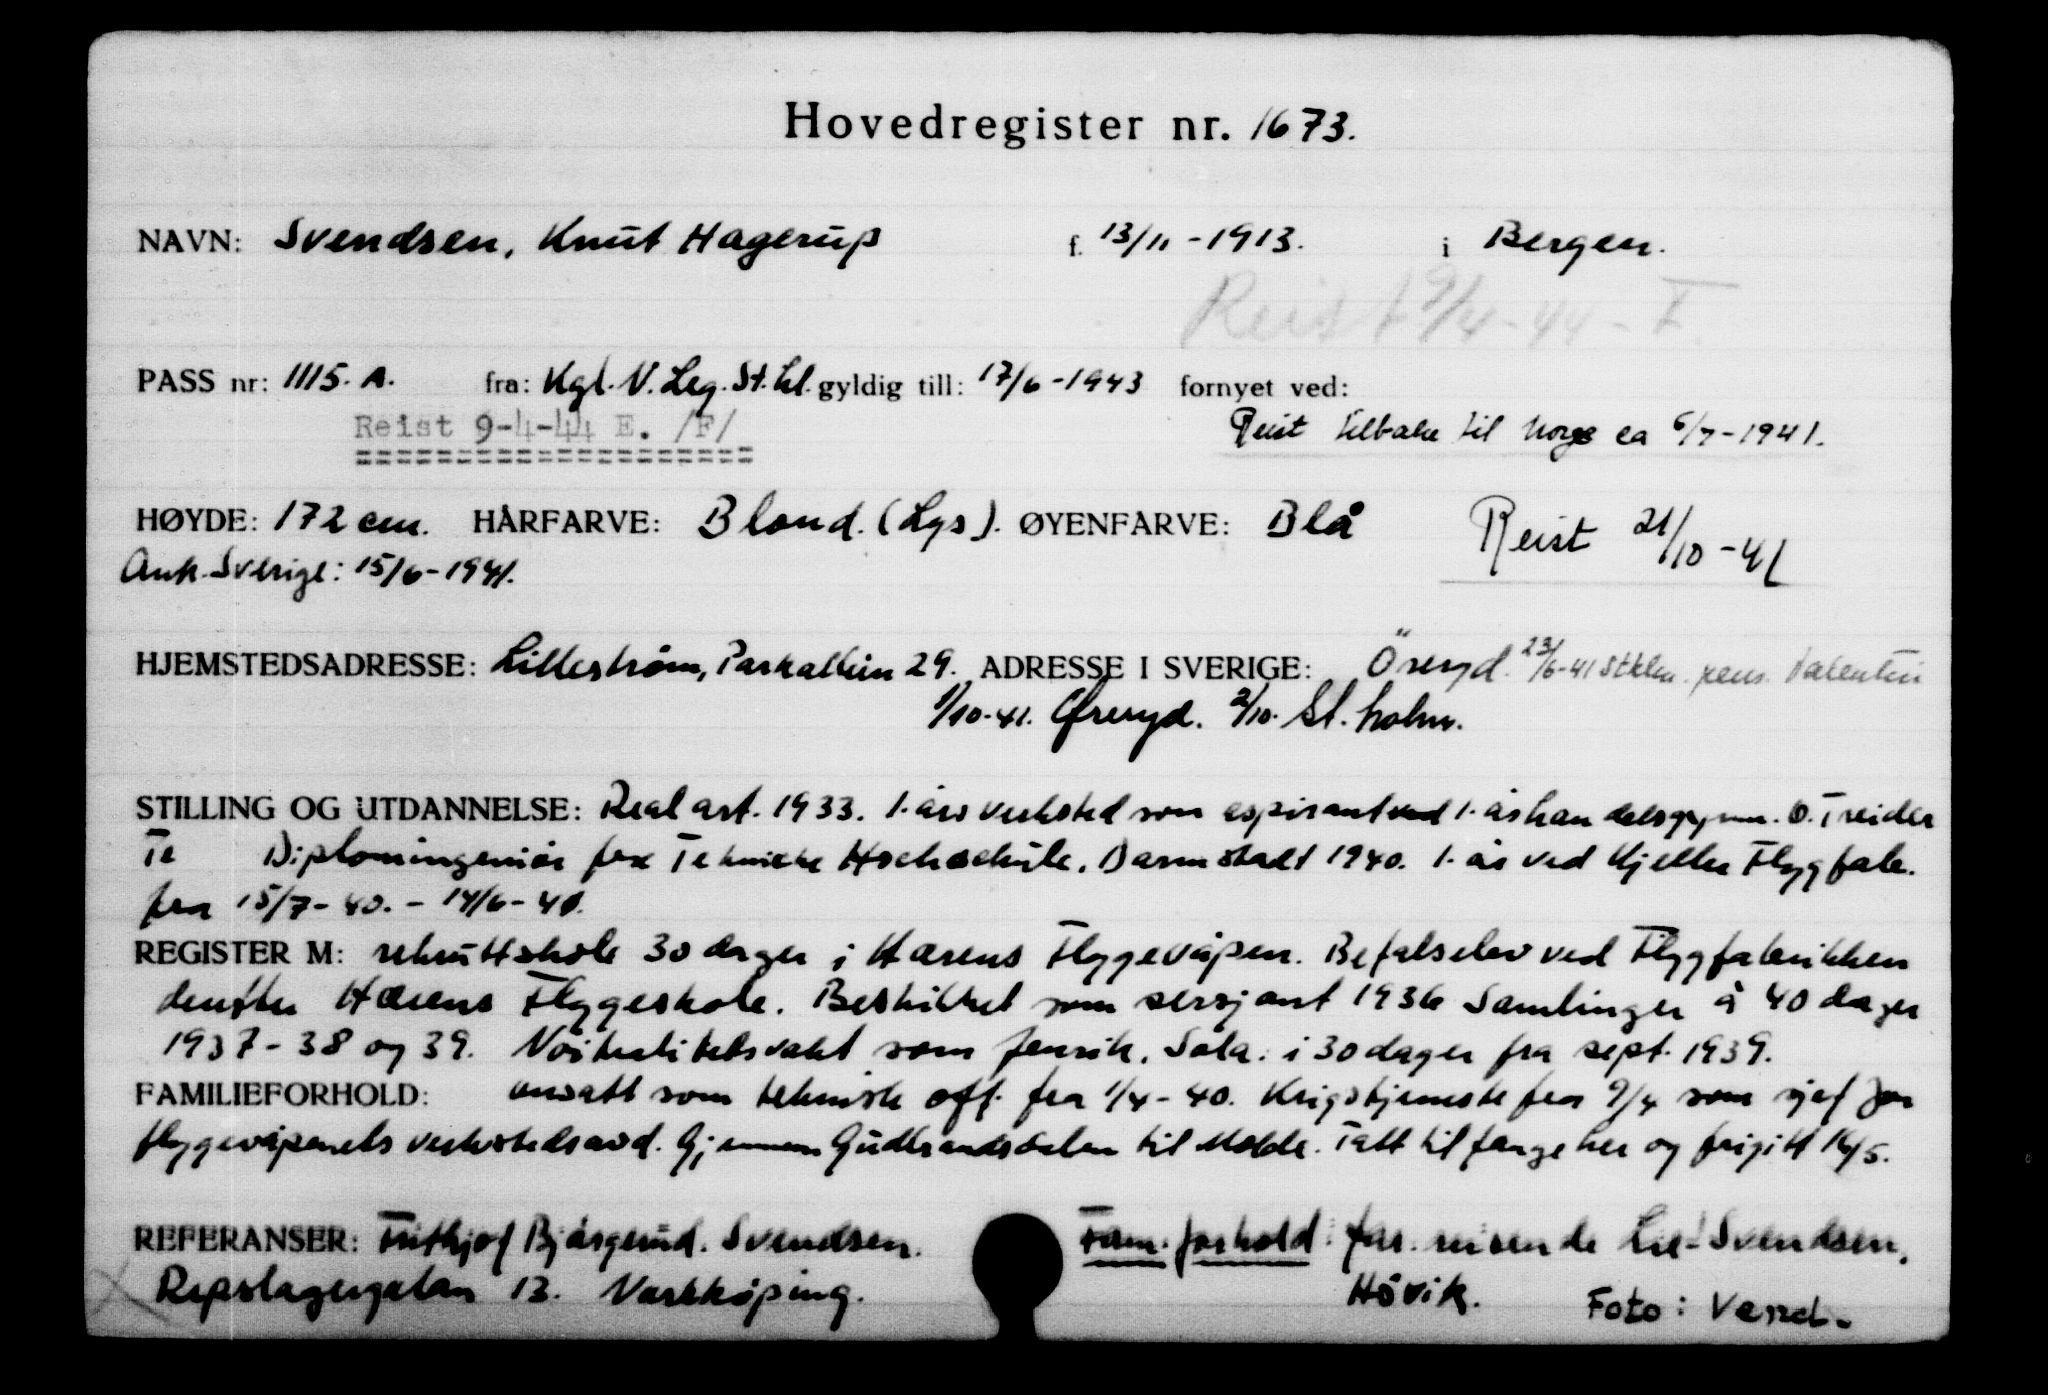 Hovedregister nr. 1673.
NAVN: Svendsen, Knut Hagerup f. 13/11-1913. i Bergen.
Reist 9/4-44-F.
PASS nr: 1115. A. fra: Kgl. N. Leg. St. hl. gyldig till: 17/6-1943 fornyet ved:
Reist 9-4-44 E. /F/
====================
Reist tilbake til Norge ca 6/7-1941.
HØYDE: 172 cm. HÅRFARVE: Blond. (Lys). ØYENFARVE: Blå
Reist 21/10-41
Ank. Sverige: 15/6-1941.
HJEMSTEDSADRESSE: Lillestrøm, Parkalleen 29. ADRESSE I SVERIGE: Öreryd. 23/6-41 Sthlm. pens. Valentin
1/10.41. Öreryd. 2/10. St. holm.
STILLING OG UTDANNELSE: Real art. 1933. 1. års verksted som aspirant ved 1. års handelsgymn. O. Treider
Te Diplomingeniør fra Tekniske Hochschule, Darmstadt 1940. 1. år ved Kjeller Flygfabr.
fra 15/7-40. - 14/6-41.
REGISTER M: rekruttskole 30 dager i Hærens Flyggevåpen. Befalselev ved Flygfabrikken
derefter Hærens Flyggeskole. Beskikket som sersjant 1936 Samlinger à 40 dager
1937-38 og 39. Nöitralitetsvakt som fenrik, Sola. i 30 dager fra sept. 1939.
FAMILIEFORHOLD: ansatt som teknisk off. fra 1/4-40. Krigstjeneste fra 9/4 som sjef for
flyggevåpenets verkstedsavd. Gjennem Gudbrandsdalen til Molde. Tatt til fange her og frigitt 16/5.
REFERANSER: Frithjof Bjørgerud. Svendsen.
Repslagergatan 13. Norrköping.
Fam. forhold: far. reisende Lie-Svendsen,
Hövik.
Foto: